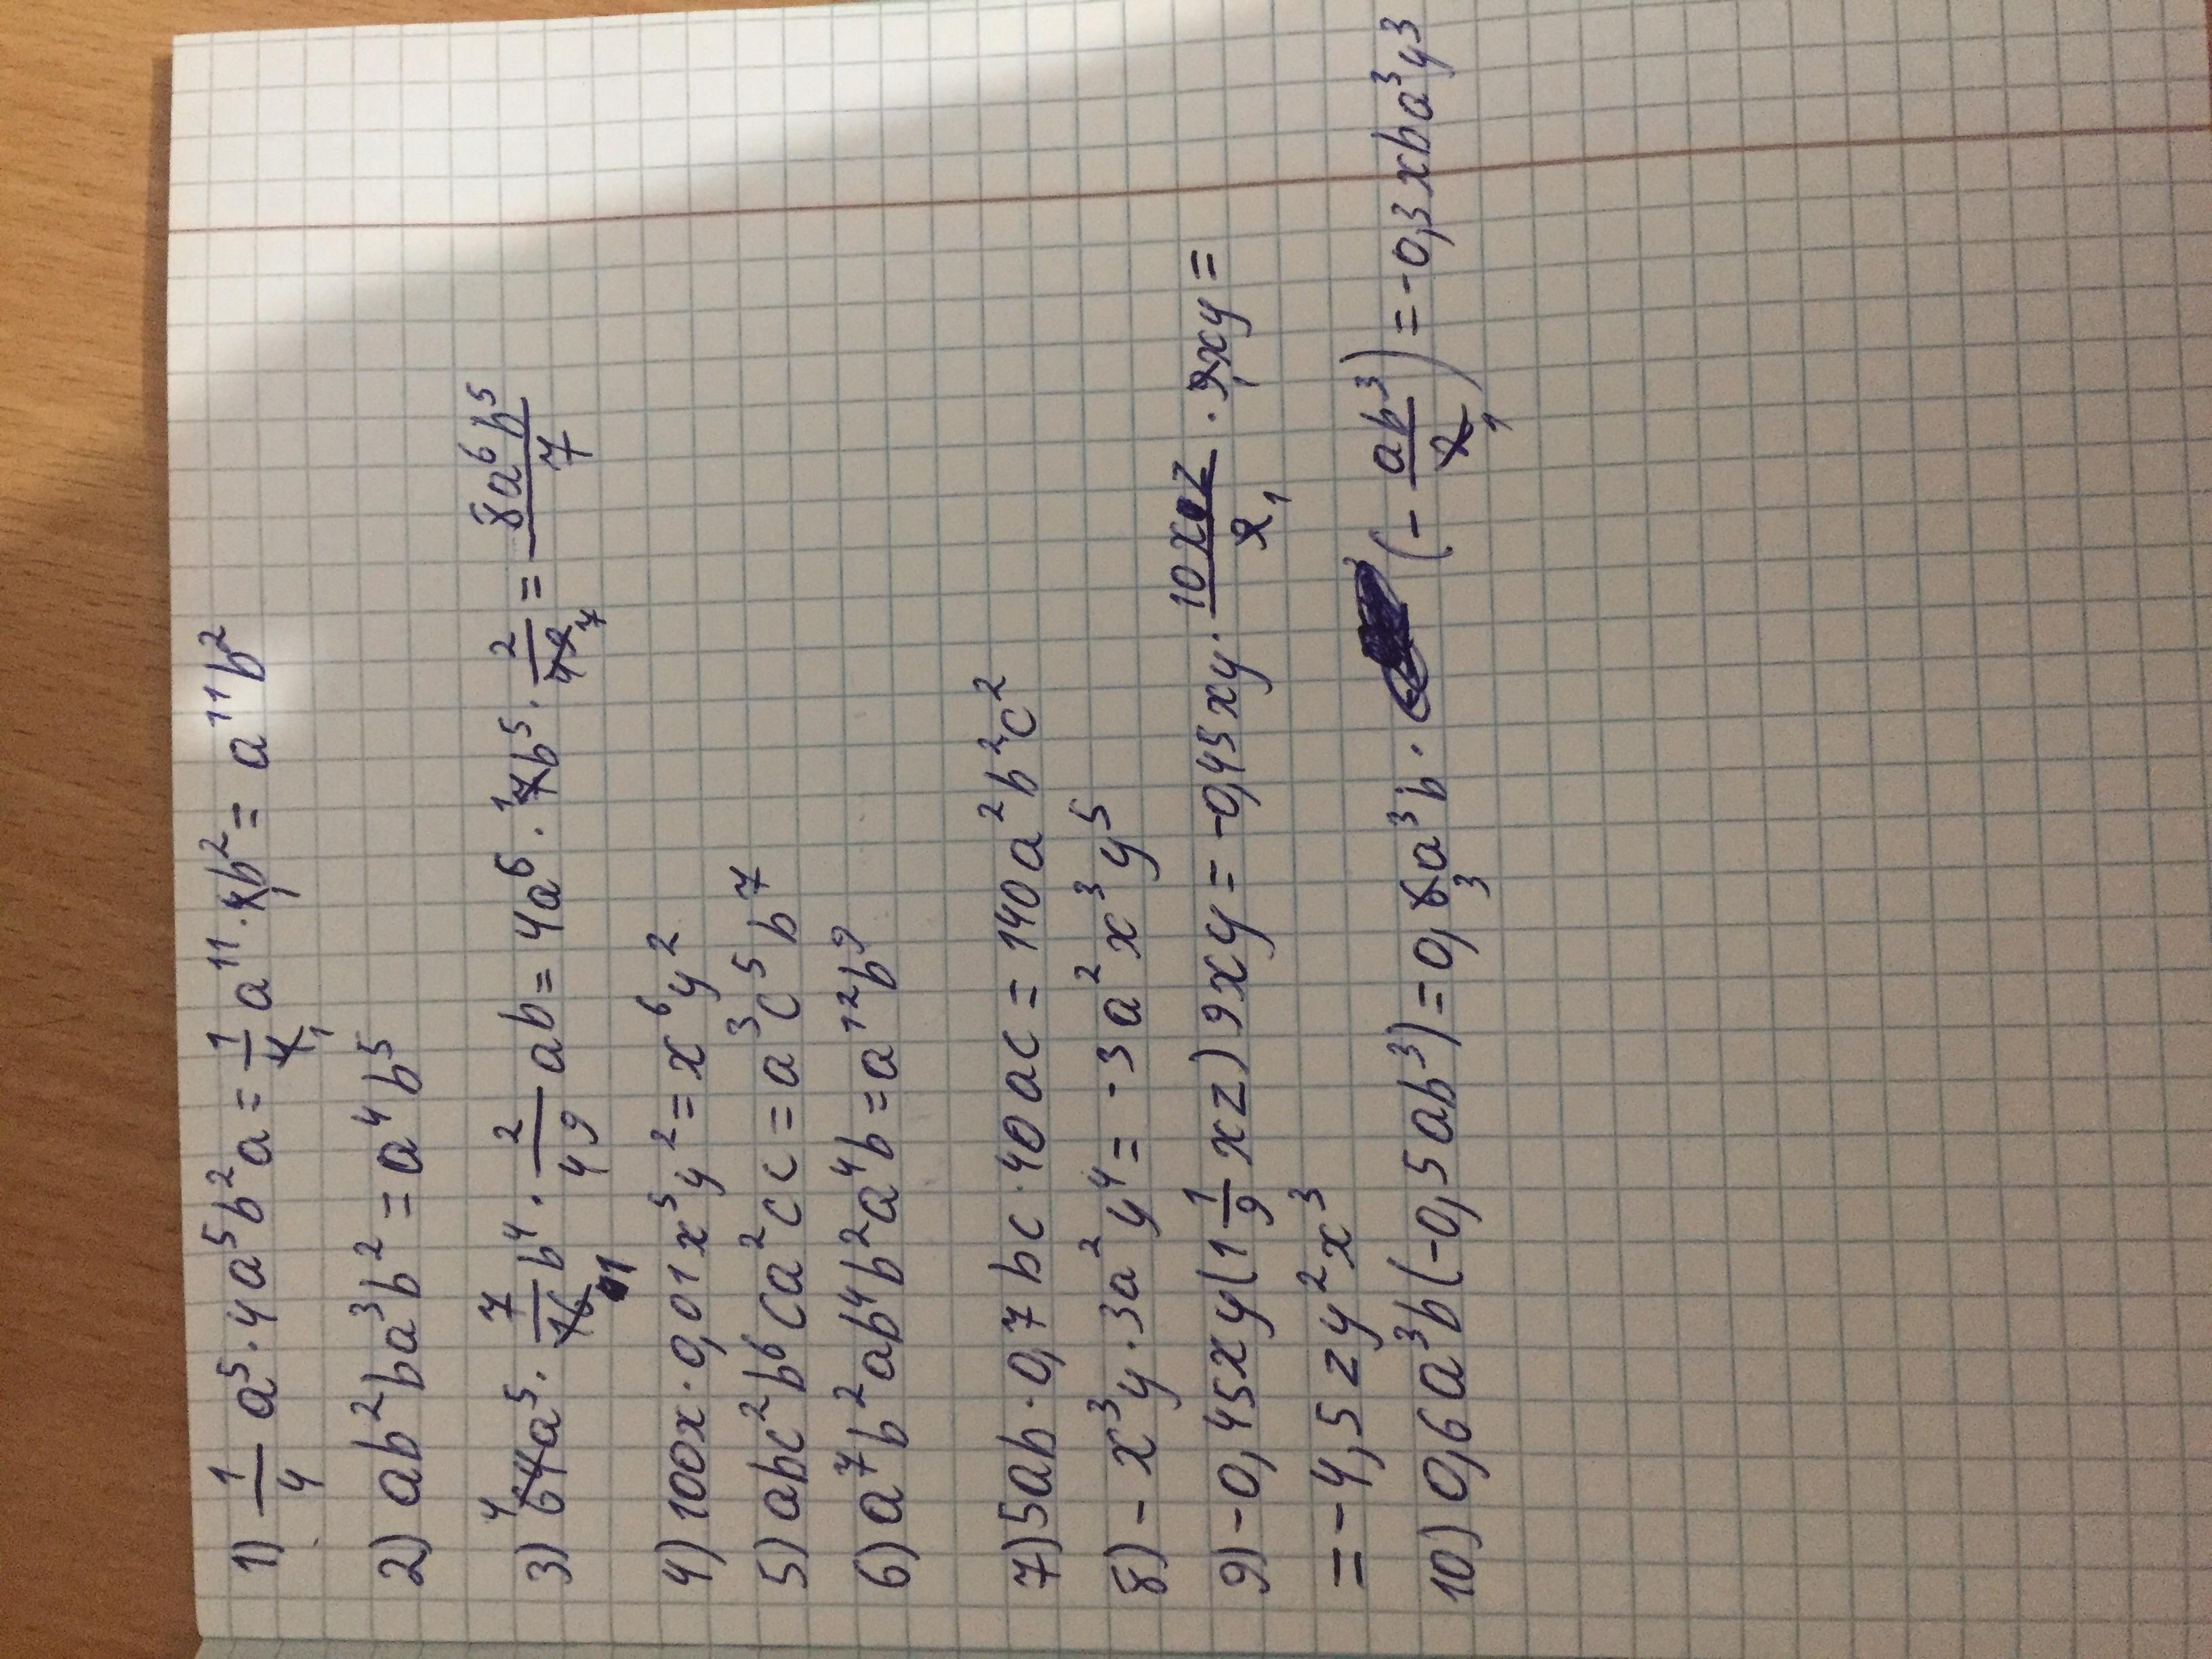 1) 1/4 a⁵ · 4a⁵b²a = 1/4 a¹¹ · 4b² = a¹¹b²
2) ab²ba³b² = a⁴b⁵
3) 64a⁵ · 7/16 b⁴ · 2/49 ab = 4a⁶ · 7b⁵ · 2/49 = 8a⁶b⁵/7
4) 100x · 0,01x⁵y² = x⁶y²
5) abc²b⁶ca²cc = a³c⁵b⁷
6) a⁷b²ab⁴b²a⁴b = a¹²b⁹
7) 5ab · 0,7bc · 40ac = 140a²b²c²
8) -x³y · 3a²y⁴ = -3a²x³y⁵
9) -0,45xy(1 1/9 xz)9xy = -0,45xy · 10xz/9 · 9xy =
= -4,5zy²x³
10) 0,6a³b(-0,5ab³) = 0,6a³b · (- ab³/2) = -0,3xba³y³